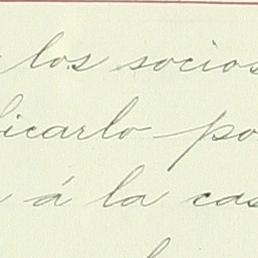 los socios
licarlo po
á la cas